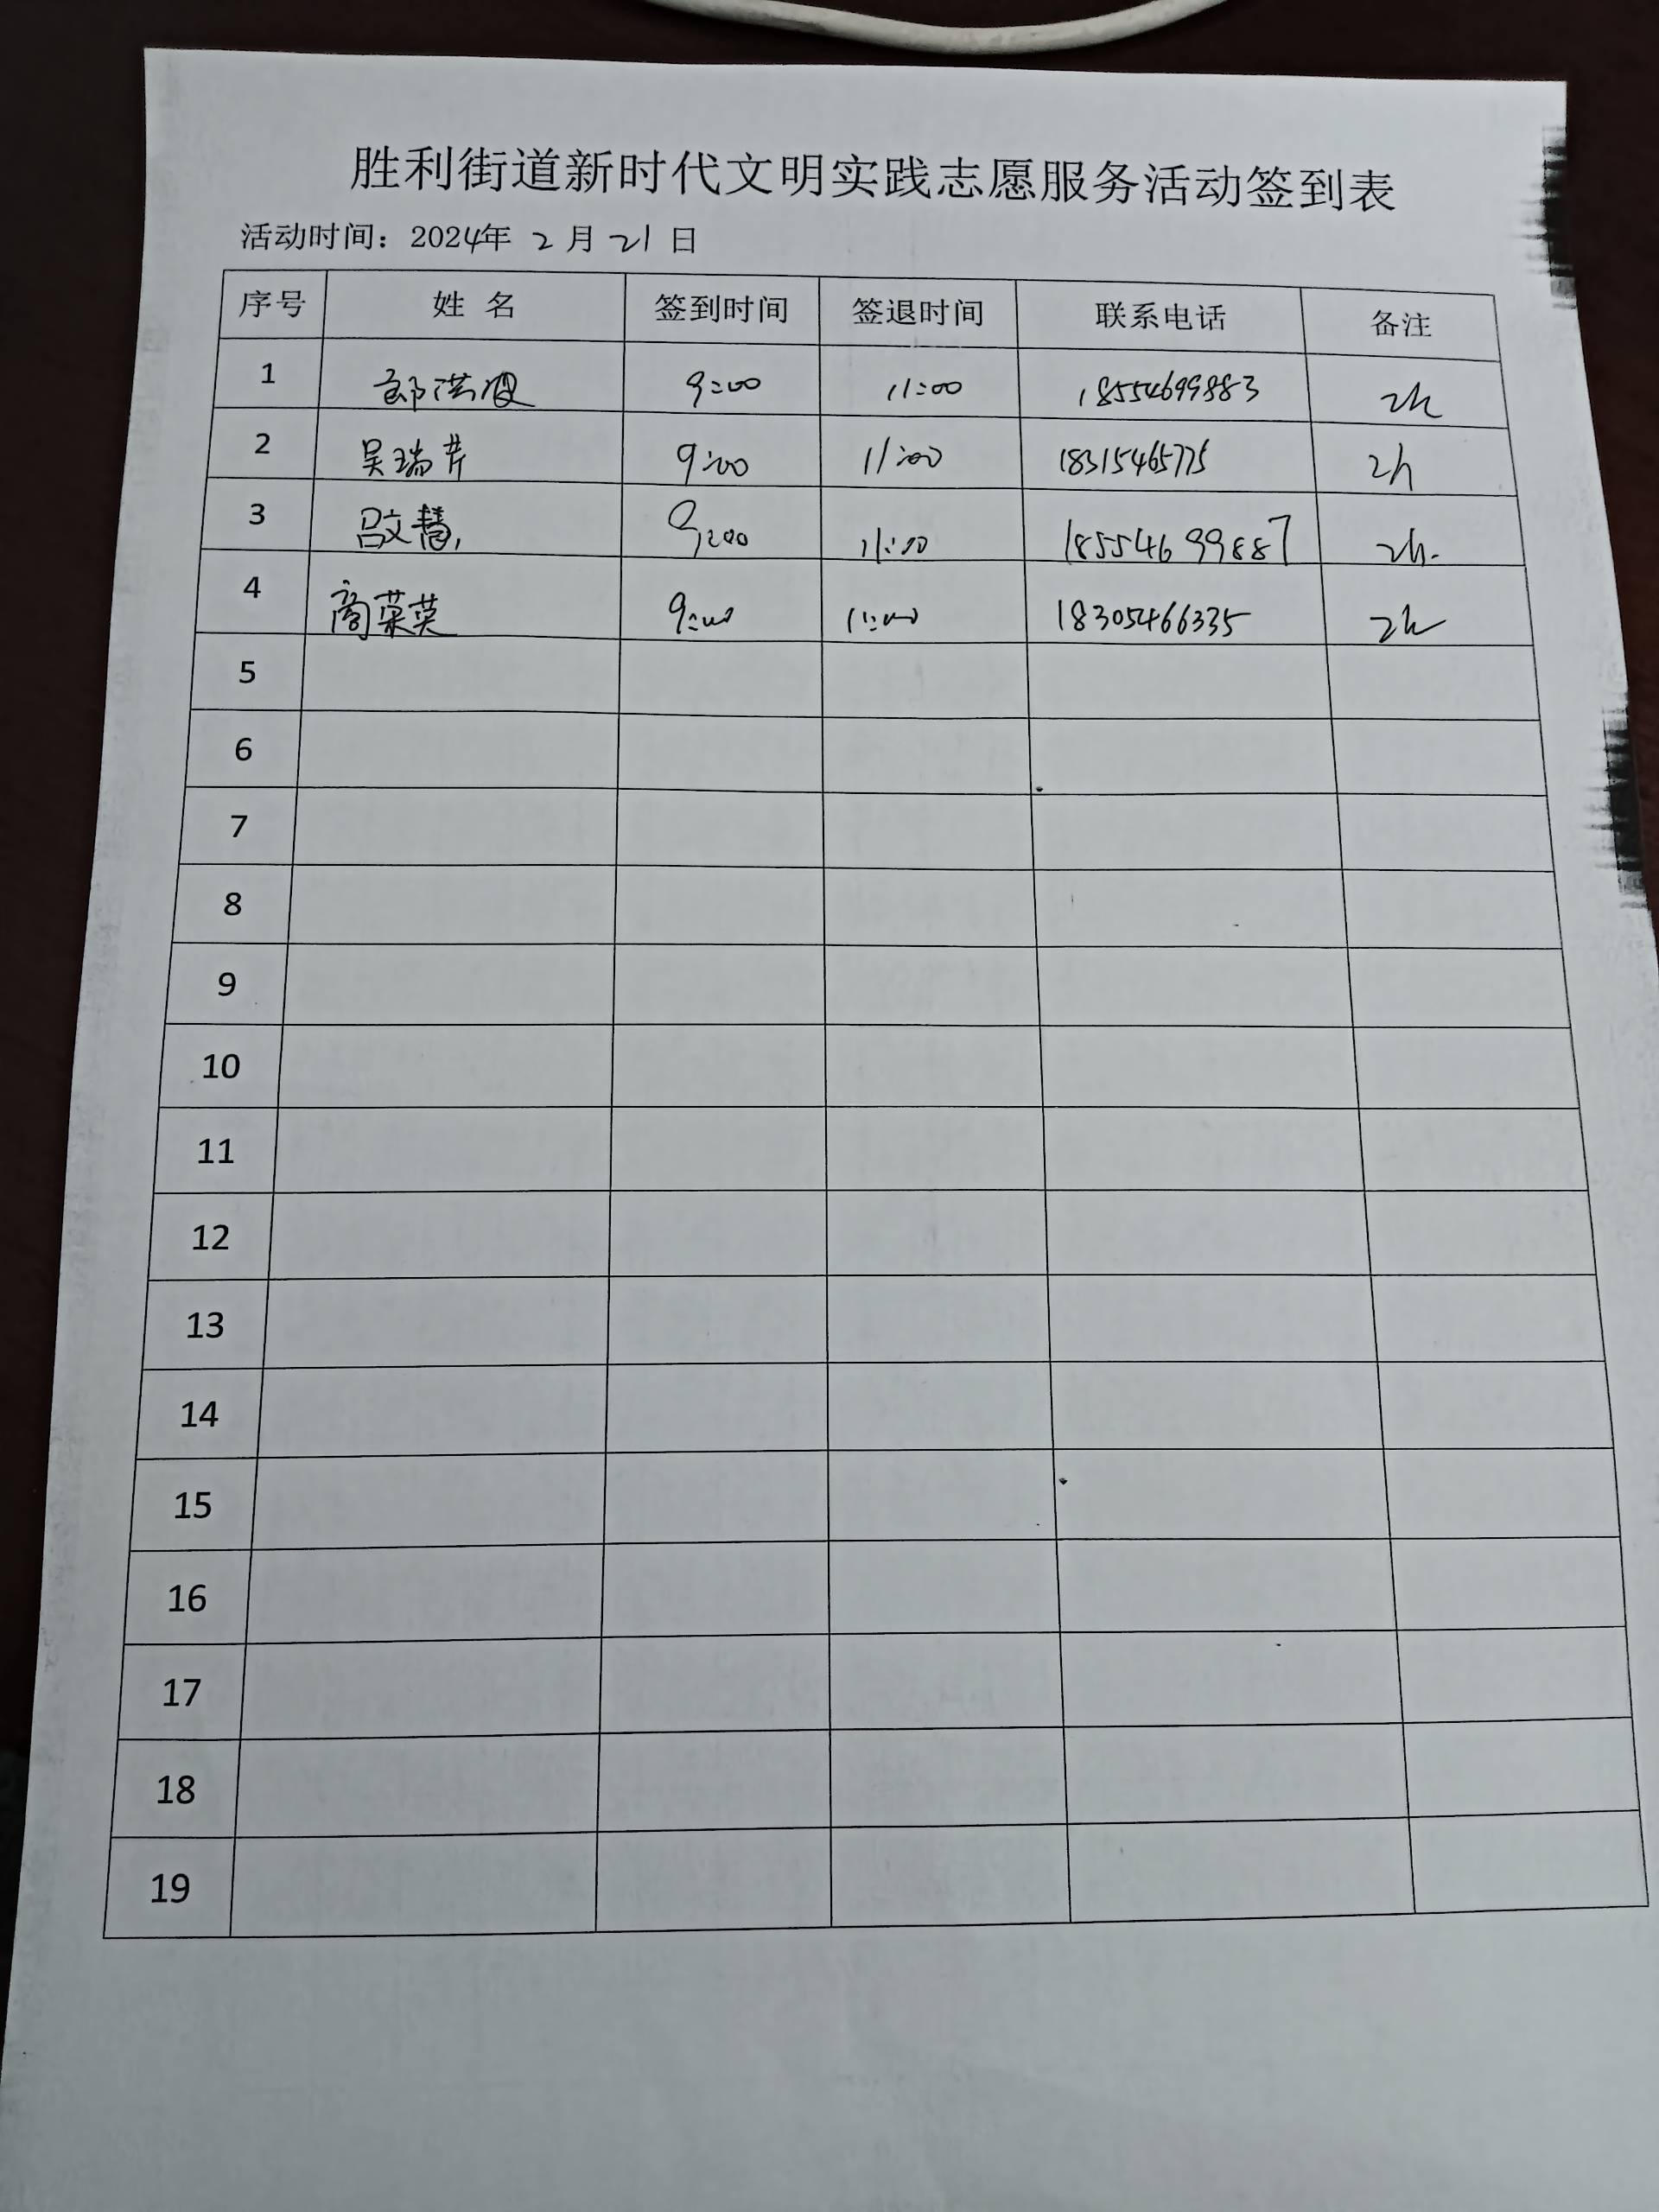 胜利街道新时代文明实践志愿服务活动签到表
活动时间：2024年 2 月 21 日
序号 姓 名 签到时间 签退时间 联系电话 备注
1 9:00 11:00 18554699883 2h
2 吴瑞芹 9:00 11:00 18315465775 2h
3 吕文慧 9:00 11:00 18554699887 2h.
4 商荣英 9:00 11:00 18305466335 2h
5
6
7
8
9
10
11
12
13
14
15
16
17
18
19